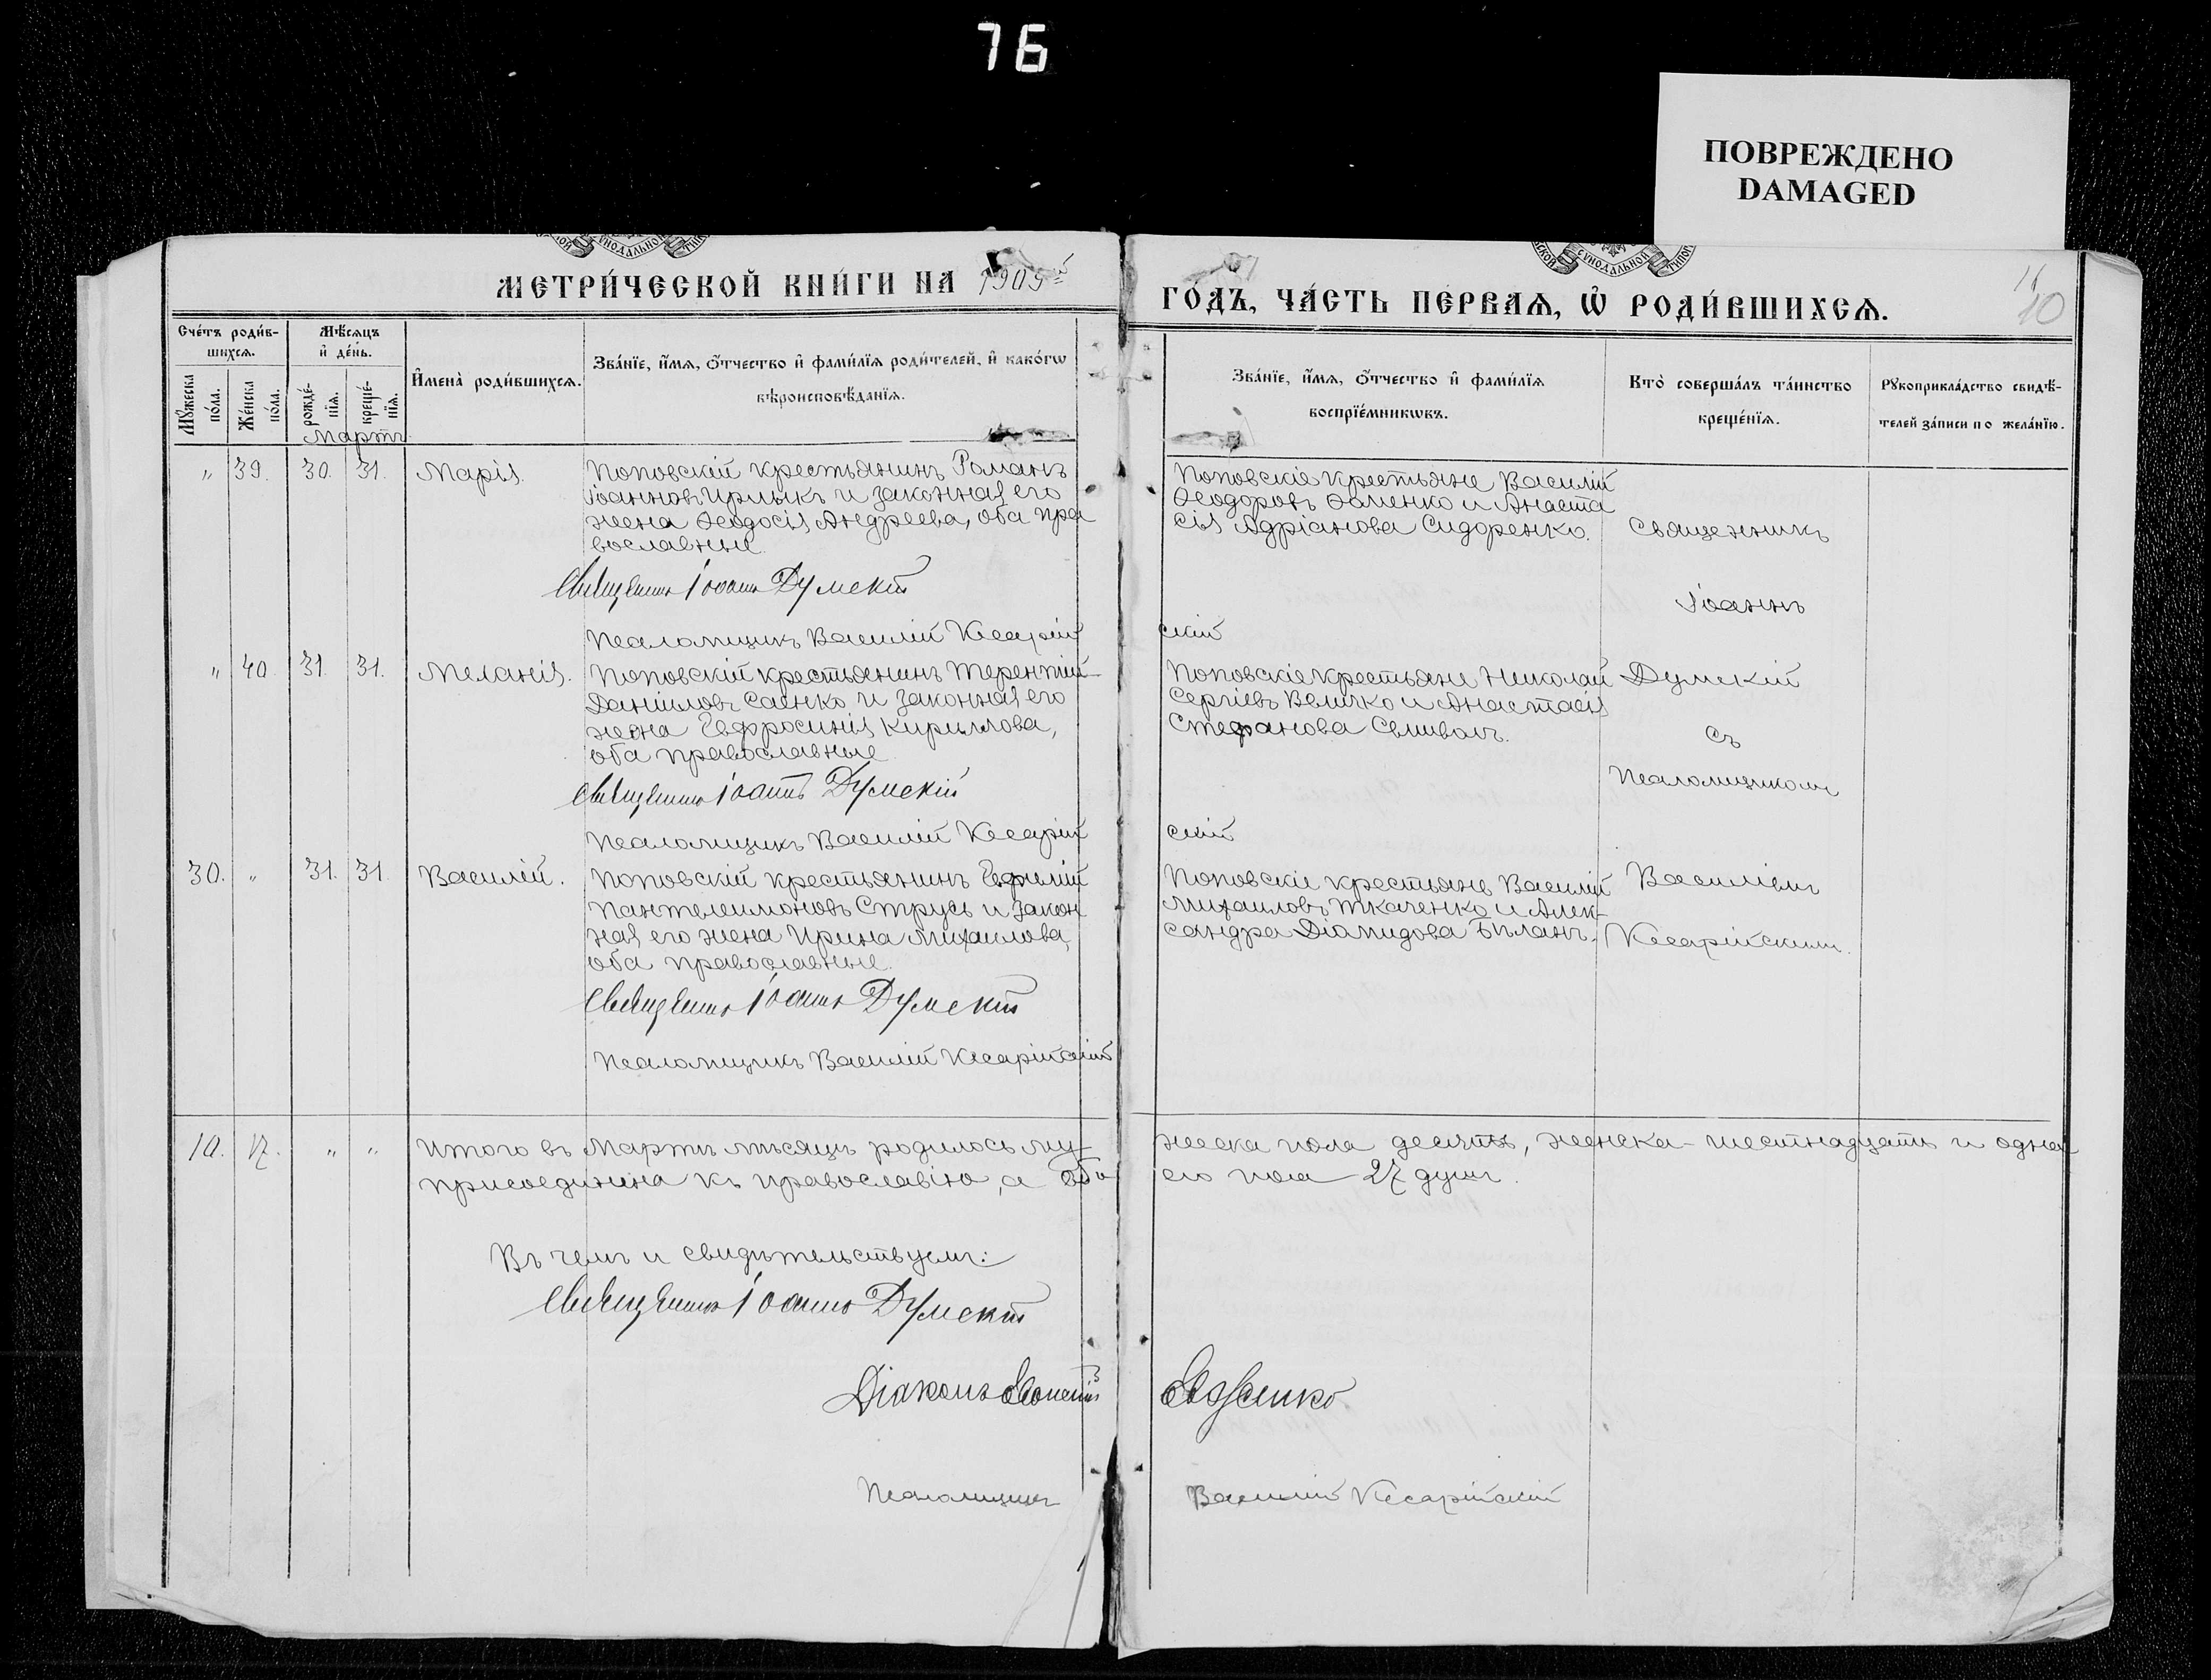 76
ПОВРЕЖДЕНО
DAMAGED
МЕТРИ́ЧЕСКОЙ КНИ́ГИ НА 1905й
ГО́ДЪ, ЧА́СТЬ ПЕ́РВАѦ, Ѡ҆ РОДИ́ВШИХСѦ.
10
Сче́тъ роди́в-
шихсѧ.
Мѣ́сѧцъ
и҆ де́нь.
Мꙋ́жеска
по́ла.
Же́нска
по́ла.
рожде́-
нїѧ.
креще́-
нїѧ.
И҆мена̀ роди́вшихсѧ.
Зва́нїе, и҆́мѧ, ѻ҆́тчество и҆ фами́лїѧ роди́телей, и҆ како́гѡ
вѣроисповѣ́данїѧ.
Зва́нїе, и҆́мѧ, ѻ҆́тчество и҆ фами́лїѧ
воспрїе́мникѡвъ.
Кто̀ соверша́лъ та́инство
креще́нїѧ.
Рꙋкоприкла́дство свидѣ́-
телей за́писи по жела́нїю.
Мартъ
" 39. 30. 31. Марія.
Поповскій крестьянинъ Романъ
Іоанновъ Ирлыкъ и законная его
жена Ѳеодосія Андреева, оба пра
вославные.
Священникъ Іоаннъ Думскій
Псаломщикъ Василій Кесарій
скій
Поповскіе крестьяне Василій
Ѳеодоровъ Ѳоменко и Анаста
сія Адріанова Сидоренко.
Священникъ
Іоаннъ
" 40. 31. 31. Меланія.
Поповскій крестьянинъ Терентій
Даніиловъ Саенко и законная его
жена Евфросинія Кириллова,
оба православные
Священникъ Іоаннъ Думскій
Псаломщикъ Василій Кесарій
скій
Поповскіе крестьяне Николай
Сергіевъ Величко и Анастасія
Стефанова
Думскій
съ
Псаломщикомъ
30. " 31. 31. Василій.
Поповскій крестьянинъ Евфимій
Пантелеимоновъ Струсь и закон
ная его жена Ирина Михаилова,
оба православные.
Священникъ Іоаннъ Думскій
Псаломщикъ Василій Кесарійскій
Поповскіе крестьяне Василій
Михаиловъ Ткаченко и Алек-
сандра Діомидова Биланъ.
Василіемъ
Кесарійскимъ.
10. 17. " " Итого въ Мартѣ мѣсяцѣ родилось му-
жеска пола десять, женска - шестнадцать и одна
присоединена къ православію, а обо
его пола 27 душъ.
Въ чемъ и свидѣтельствуемъ:
Священникъ Іоаннъ Думскій
Діаконъ
Псаломщикъ Василій Кесарійскій